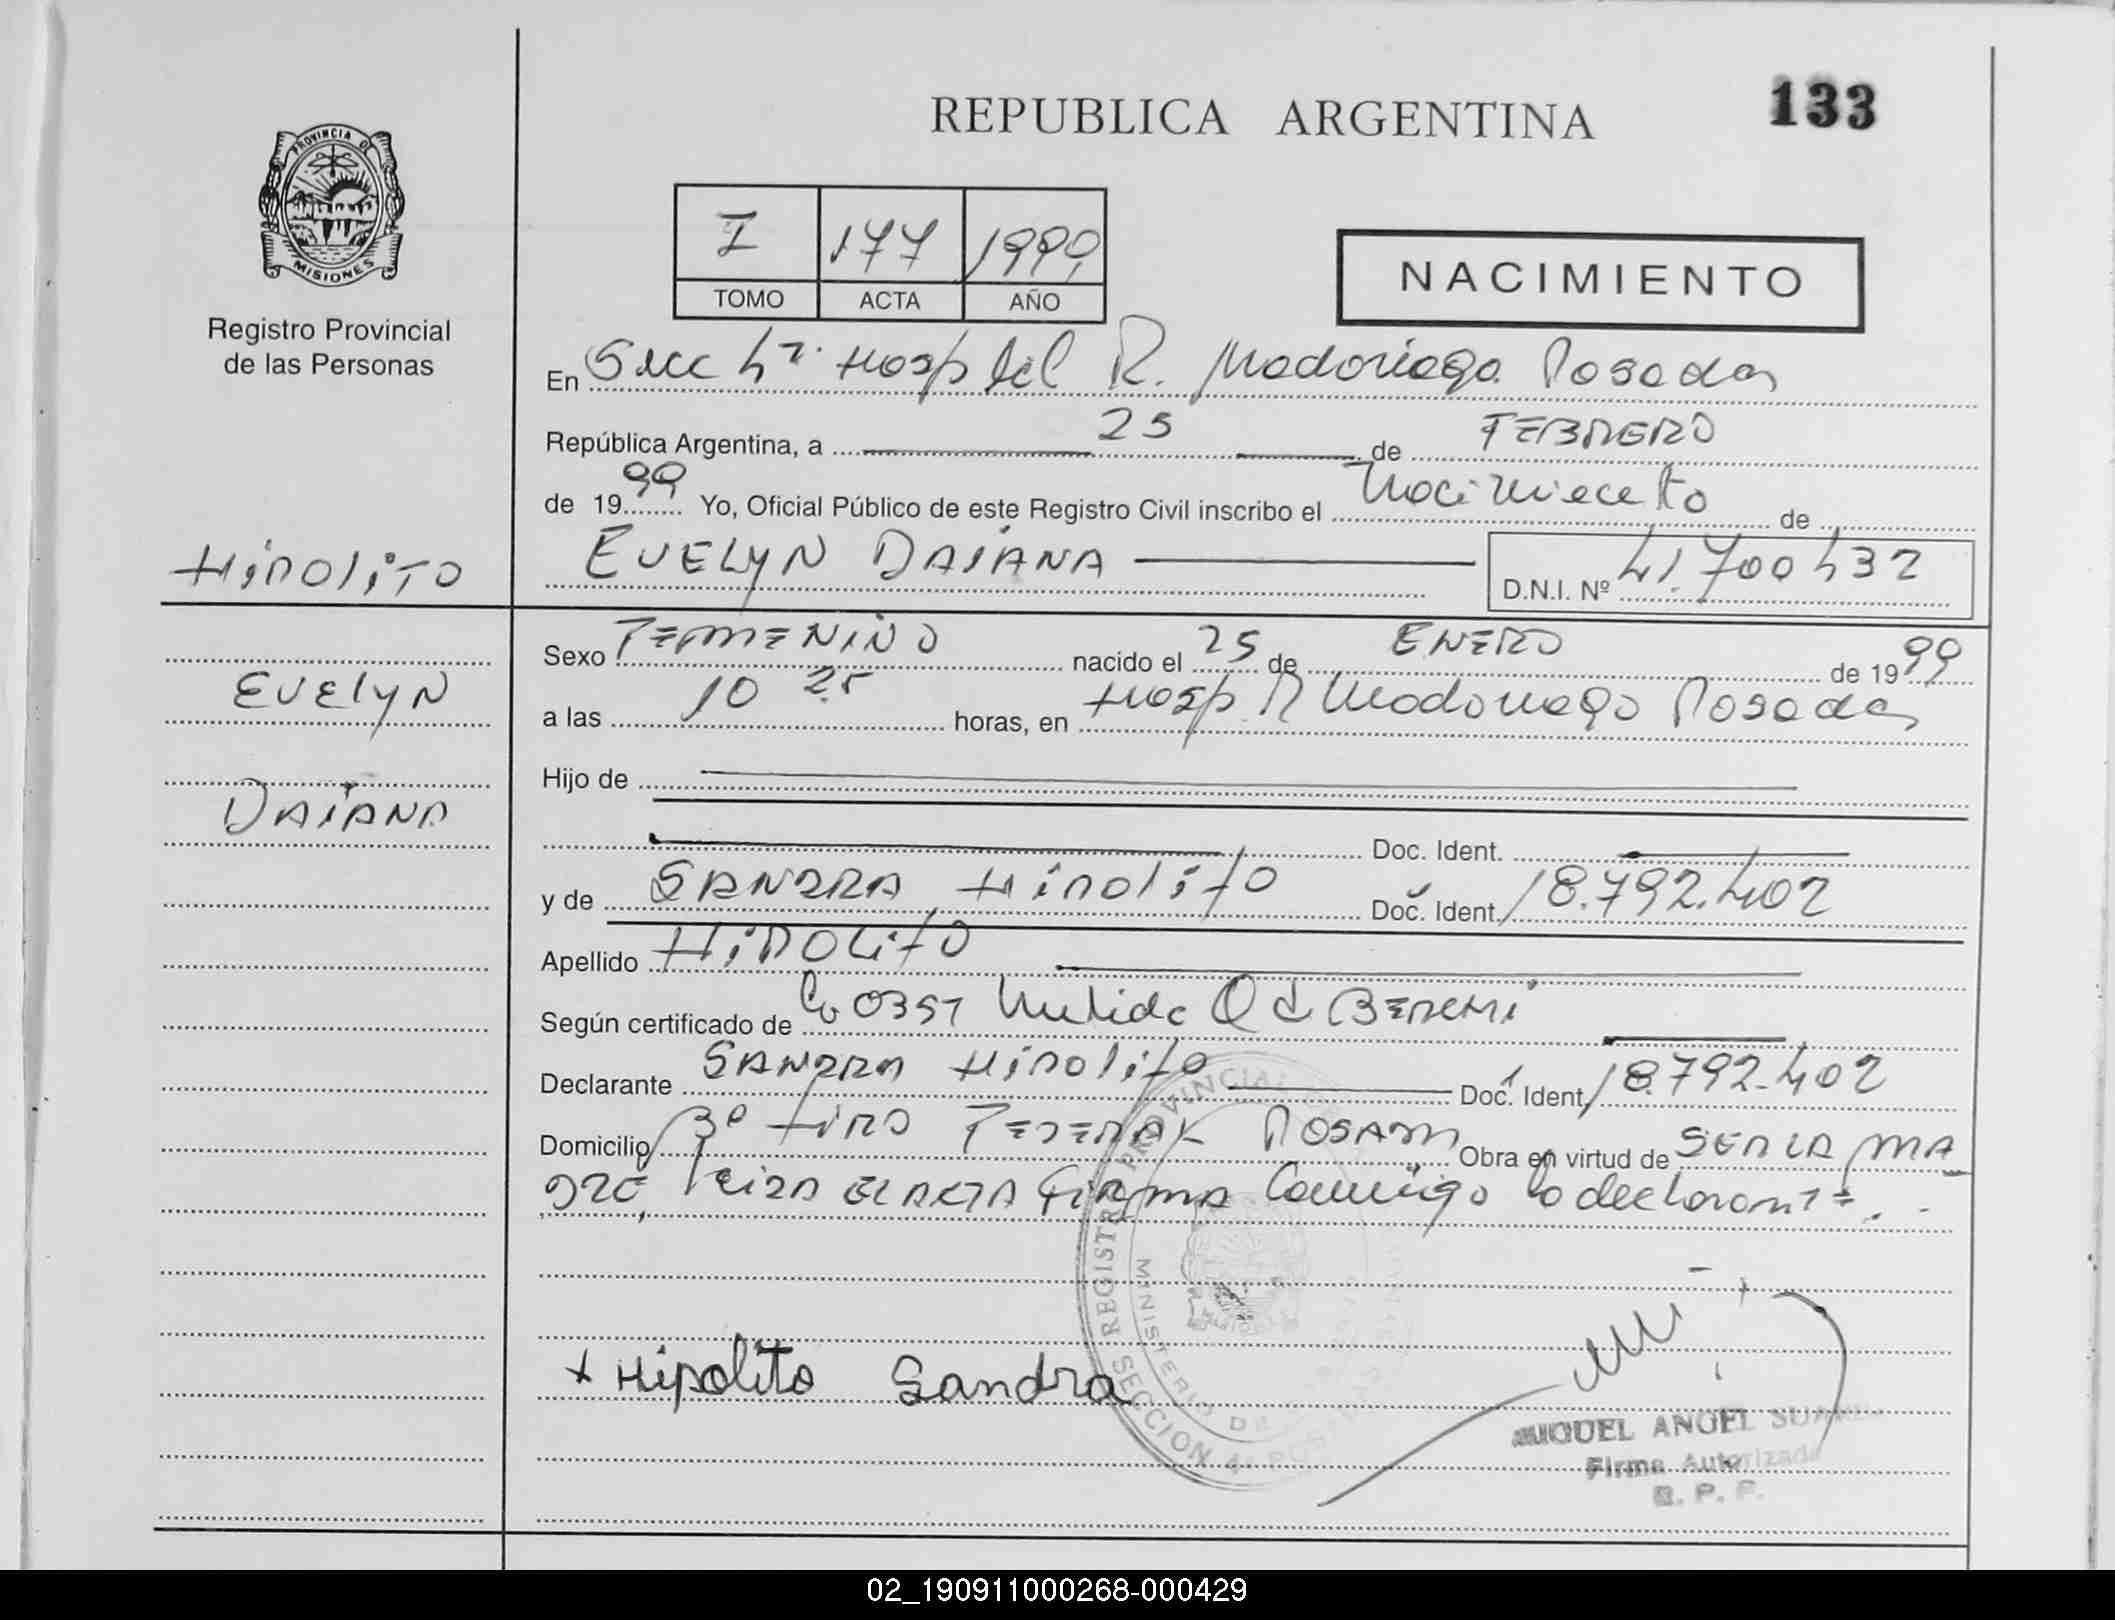 REPUBLICA ARGENTINA
133
PROVINCIA DE
MISIONES
Registro Provincial
de las Personas
I 177 1999
TOMO ACTA AÑO
NACIMIENTO
En Secc 4ª. Hosp del R. Madariaga Posadas
República Argentina, a 25 de FEBRERO
de 1999 Yo, Oficial Público de este Registro Civil inscribo el Nacimiento de
HIPOLITO
EVELYN DAIANA D.N.I. Nº 41.700432
EVELYN
DAIANA
Sexo FEMENINO nacido el 25 de ENERO de 1999
a las 10 25 horas, en Hosp R Madariaga Posadas
Hijo de
Doc. Ident.
y de SANDRA HIPOLITO Doc. Ident. 18.792.402
Apellido HIPOLITO
Según certificado de 0357
Declarante SANDRA HIPOLITO Doc. Ident. 18.792.402
Domicilio Bº TIRO FEDERAL POSADAS Obra en virtud de SER LA MA
DRE, Leida EL ACTA FIRMA Conmigo la declarante.
REGISTRO PROVINCIAL
MINISTERIO DE
SECCION 4ª POSADAS
+ Hipolito Sandra
MIGUEL ANGEL SUAREZ
Firma Autorizada
R. P. P.
02_190911000268-000429